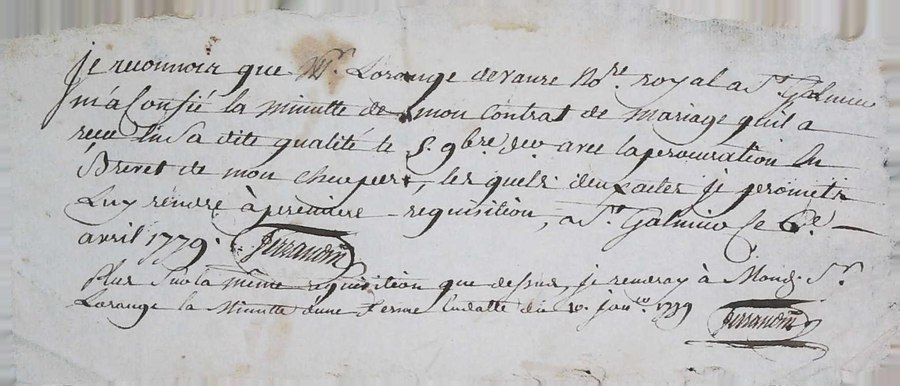 je reconnoir que Mr. Lorange devanre Nore royal a St. Galmier
m'a Confié la minutte de mon Contrat de mariage qu'il a
receu en Sa dite qualité le 9bre der avec la procuration En
Brevet de mon cher pere, les quels deux actes je promets
Luy rendre à premiere requisition, a St. Galmier ce 6e.
avril 1779. ferrandin
Plus Sur la même requisition que dessus, je rendray à Mond. Sr.
Lorange la Minutte d'une Ferme En datte du 10. janer 1779
ferrandin